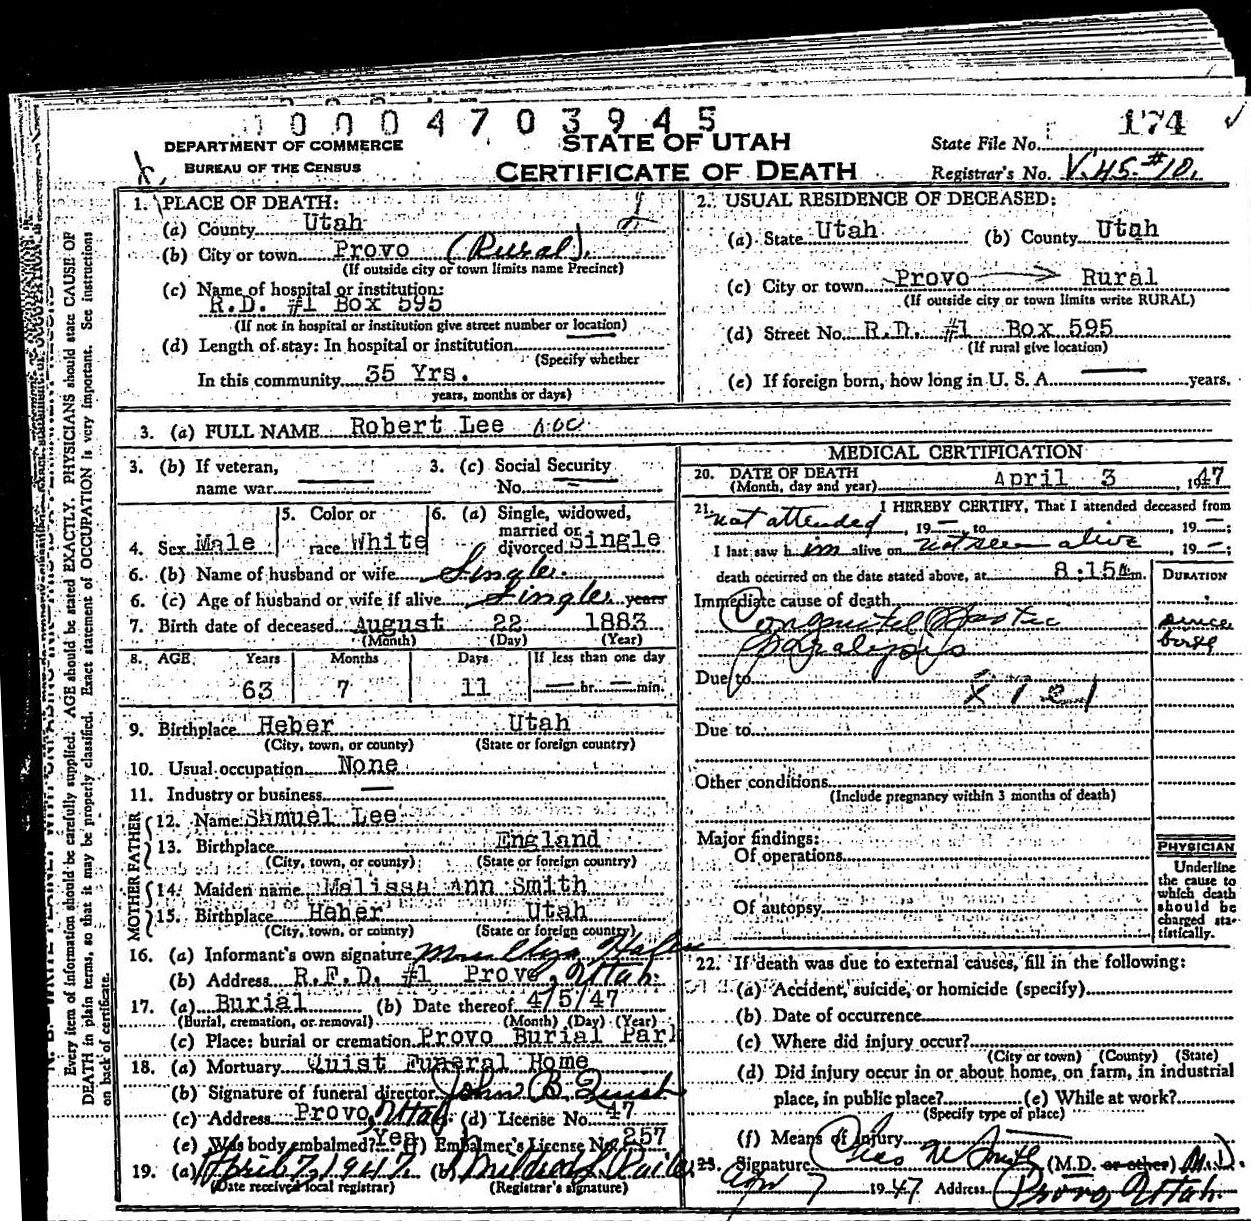 1 0 0 0 4 7 0 3 9 4 5
174
DEPARTMENT OF COMMERCE
BUREAU OF THE CENSUS
STATE OF UTAH
CERTIFICATE OF DEATH
State File No.
Registrar's No. V.H.S. #10.
1. PLACE OF DEATH:
(a) County Utah
(b) City or town Provo (Rural).
(If outside city or town limits name Precinct)
(c) Name of hospital or institution:
R.D. #1 Box 595
(If not in hospital or institution give street number or location)
(d) Length of stay: In hospital or institution
(Specify whether
In this community 35 Yrs.
years, months or days)
2. USUAL RESIDENCE OF DECEASED:
(a) State Utah (b) County Utah
(c) City or town Provo Rural
(If outside city or town limits write RURAL)
(d) Street No. R.D. #1 Box 595
(If rural give location)
(e) If foreign born, how long in U. S. A. years.
3. (a) FULL NAME Robert Lee
3. (b) If veteran, name war
3. (c) Social Security No.
4. Sex Male
5. Color or race White
6. (a) Single, widowed, married or divorced Single
6. (b) Name of husband or wife Single.
6. (c) Age of husband or wife if alive Single years
7. Birth date of deceased August 22 1883
(Month) (Day) (Year)
8. AGE Years Months Days If less than one day
63 7 11 hr. min.
9. Birthplace Heber Utah
(City, town, or county) (State or foreign country)
10. Usual occupation None
11. Industry or business
FATHER
12. Name Samuel Lee
13. Birthplace England
(City, town, or county) (State or foreign country)
MOTHER
14. Maiden name Malissa Ann Smith
15. Birthplace Heber Utah
(City, town, or county) (State or foreign country)
16. (a) Informant's own signature
(b) Address R.F.D. #1 Provo, Utah.
17. (a) Burial (b) Date thereof 4/5/47
(Burial, cremation, or removal) (Month) (Day) (Year)
(c) Place: burial or cremation Provo Burial Park
18. (a) Mortuary Quist Funeral Home
(b) Signature of funeral director John B. Quist
(c) Address Provo, Utah. (d) License No. 47
(e) Was body embalmed? Yes (f) Embalmer's License No. 257
19. (a) April 7, 1947 (b)
(Date received local registrar) (Registrar's signature)
MEDICAL CERTIFICATION
20. DATE OF DEATH
(Month, day and year) April 3, 1947
21. I HEREBY CERTIFY, That I attended deceased from
not attended, 19—, to, 19—;
I last saw him alive on not seen alive, 19—;
death occurred on the date stated above, at 8:15 m.
DURATION
Immediate cause of death
Congenital Spastic
Paralysis
since
birth
Due to
Due to
Other conditions
(Include pregnancy within 3 months of death)
Major findings:
Of operations
Of autopsy
PHYSICIAN
Underline the cause to which death should be charged statistically.
22. If death was due to external causes, fill in the following:
(a) Accident, suicide, or homicide (specify)
(b) Date of occurrence
(c) Where did injury occur?
(City or town) (County) (State)
(d) Did injury occur in or about home, on farm, in industrial
place, in public place? (e) While at work?
(Specify type of place)
(f) Means of injury
23. Signature Chas M Smith (M.D. or other) M.D.
Apr 7 1947 Address Provo, Utah.
Every item of information should be carefully supplied. AGE should be stated EXACTLY. PHYSICIANS should state CAUSE OF
DEATH in plain terms, so that it may be properly classified. Exact statement of OCCUPATION is very important. See instructions
on back of certificate.